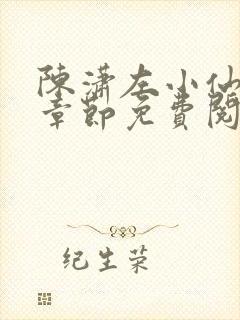 陳瀟左小仙
章節免費閱
纪生荣